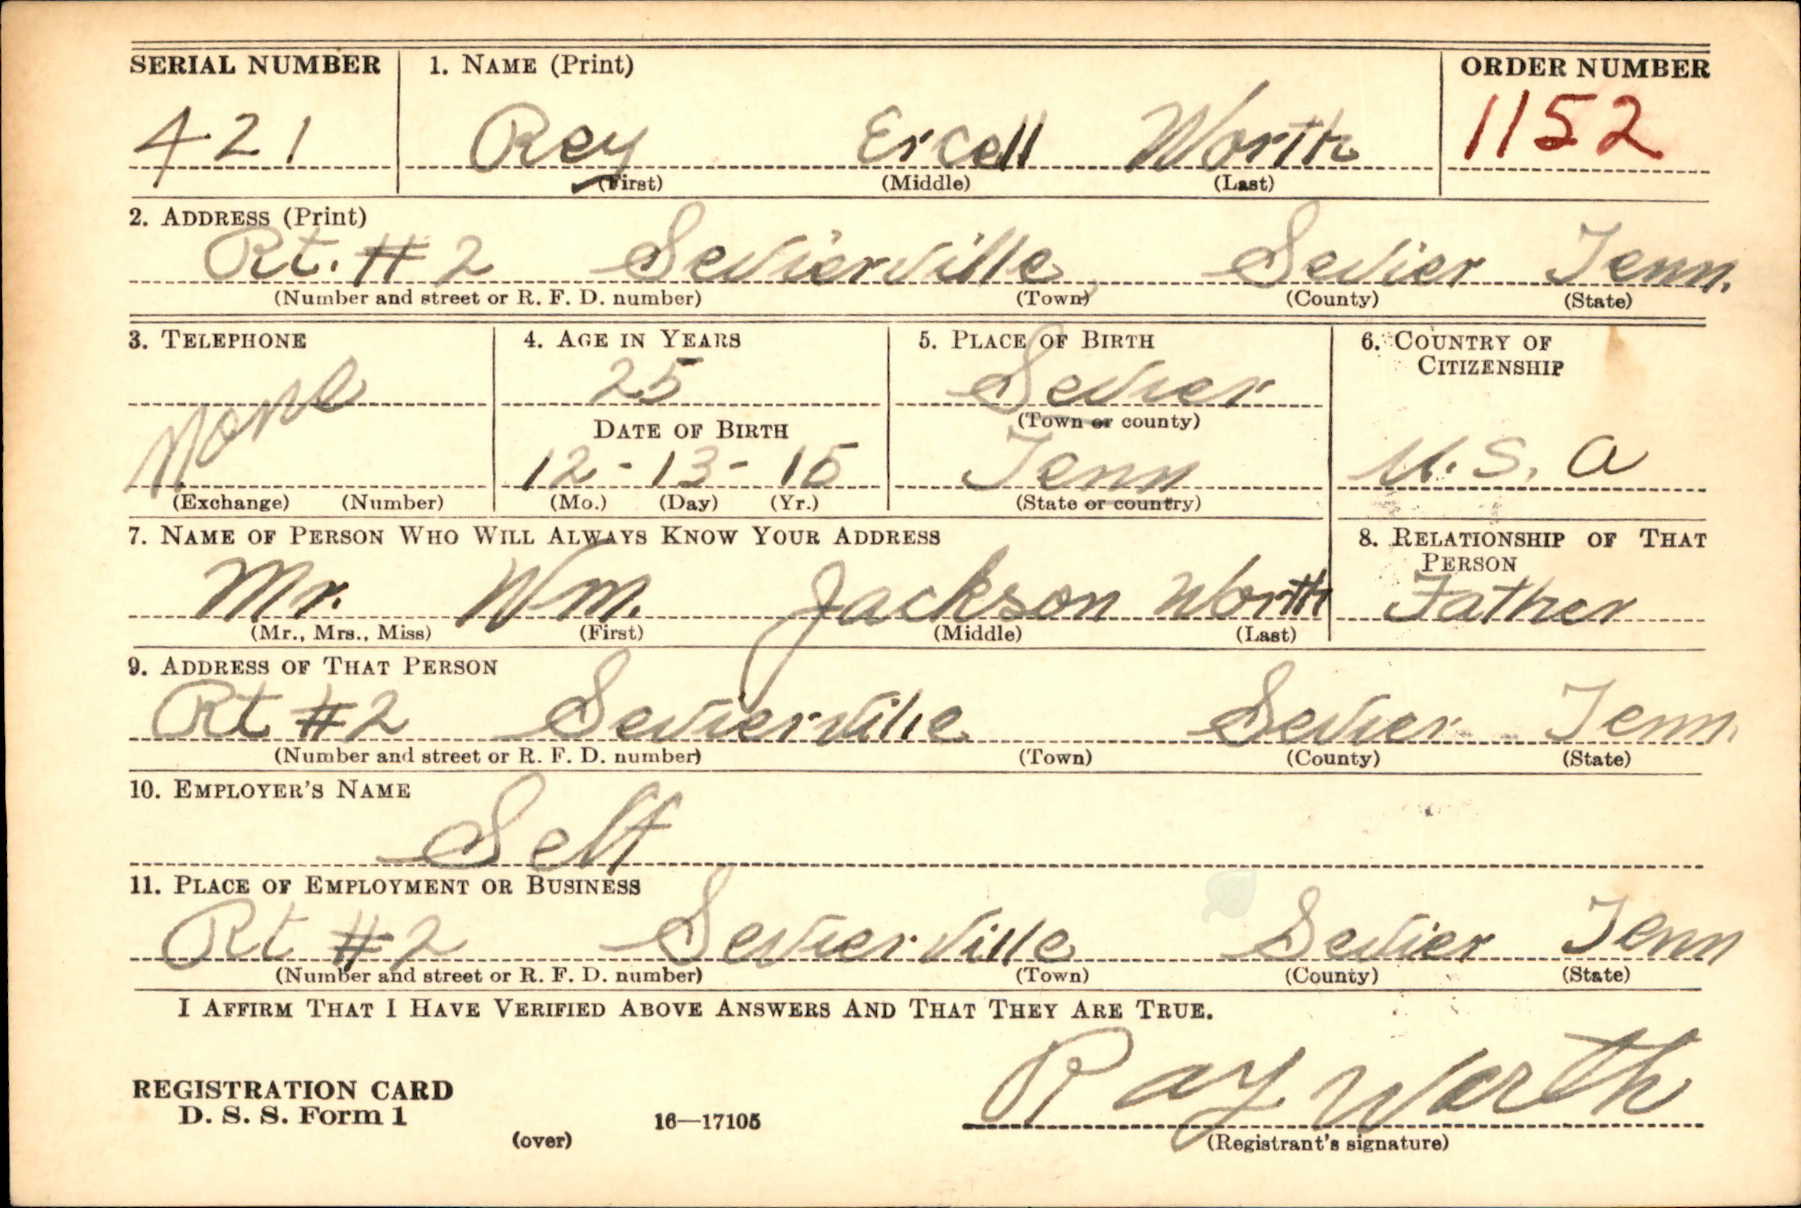 SERIAL NUMBER 1. NAME (Print) ORDER NUMBER
421 Rey Ercell Worth 1152
(First) (Middle) (Last)
2. ADDRESS (Print)
Rt. # 2 Sevierville, Sevier Tenn.
(Number and street or R. F. D. number) (Town) (County) (State)
3. TELEPHONE 4. AGE IN YEARS 5. PLACE OF BIRTH 6. COUNTRY OF
CITIZENSHIP
None 25 Sevier
(Town or county)
DATE OF BIRTH
12-13-15 Tenn U.S.A
(Exchange) (Number) (Mo.) (Day) (Yr.) (State or country)
7. NAME OF PERSON WHO WILL ALWAYS KNOW YOUR ADDRESS 8. RELATIONSHIP OF THAT
PERSON
Mr. Wm. Jackson Worth Father
(Mr., Mrs., Miss) (First) (Middle) (Last)
9. ADDRESS OF THAT PERSON
Rt #2 Sevierville Sevier Tenn.
(Number and street or R. F. D. number) (Town) (County) (State)
10. EMPLOYER'S NAME
Self
11. PLACE OF EMPLOYMENT OR BUSINESS
Rt #2 Sevierville Sevier Tenn
(Number and street or R. F. D. number) (Town) (County) (State)
I AFFIRM THAT I HAVE VERIFIED ABOVE ANSWERS AND THAT THEY ARE TRUE.
Ray Worth
REGISTRATION CARD
D. S. S. Form 1
(over) 16—17105 (Registrant's signature)